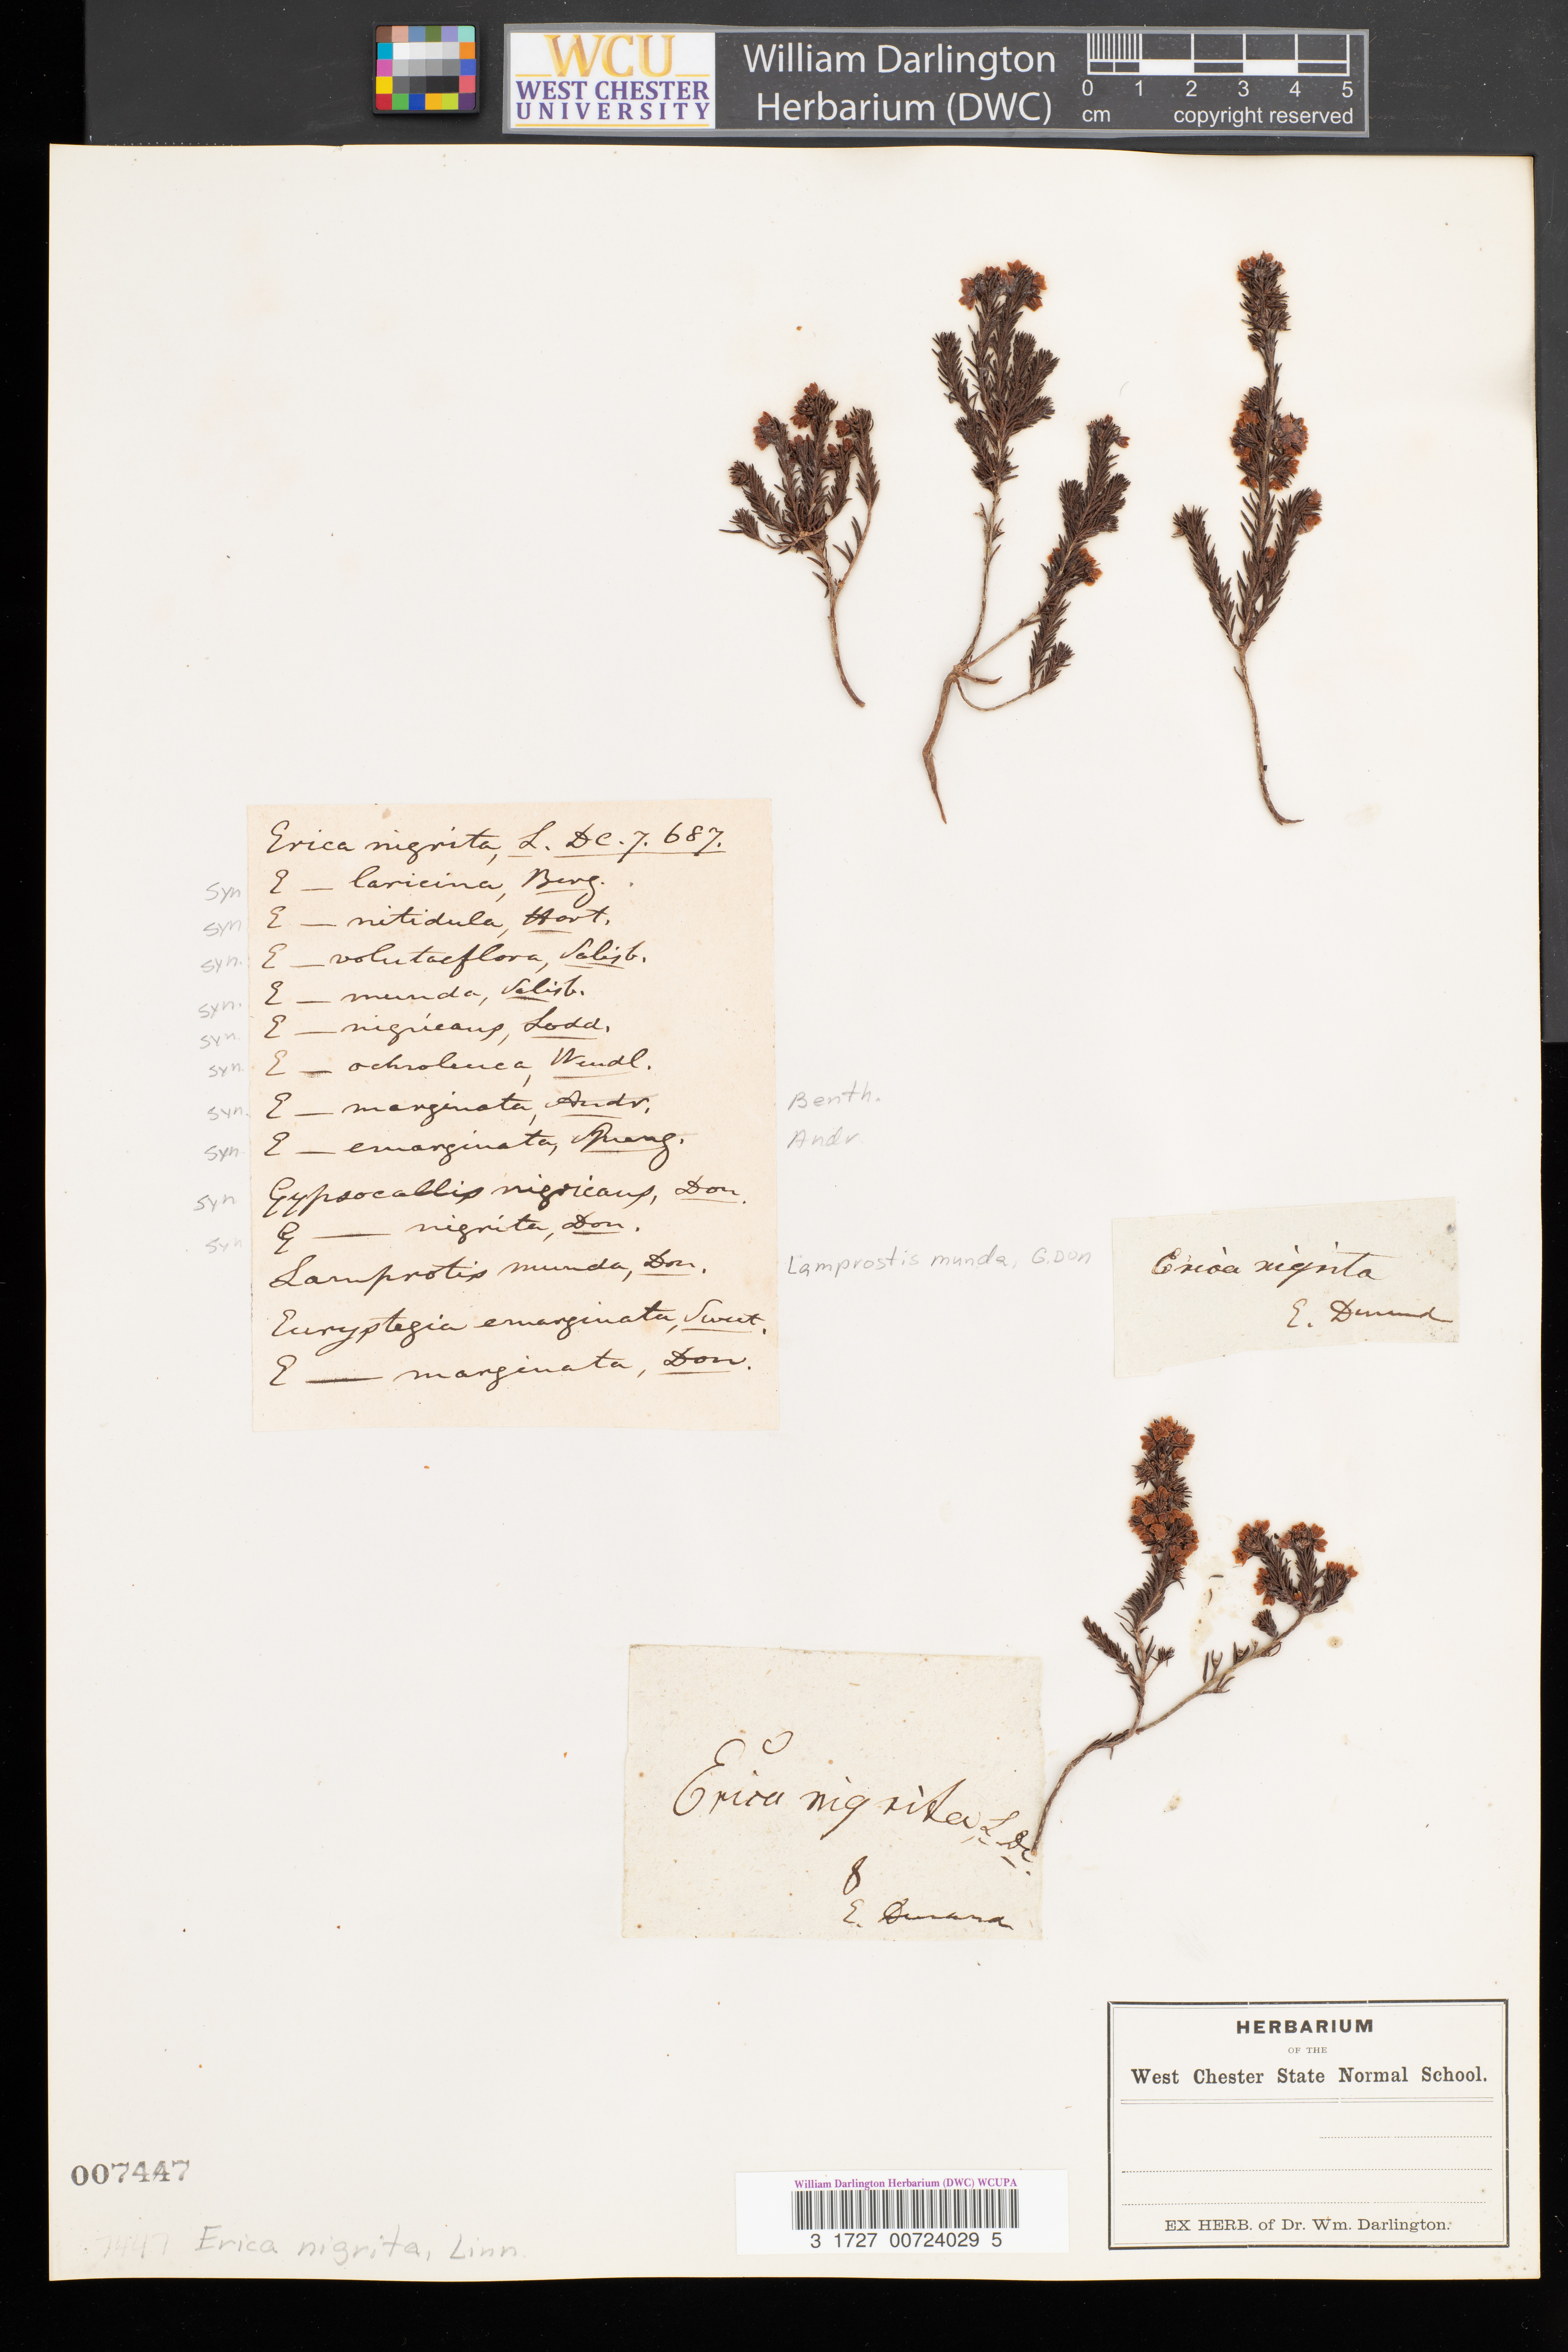 WCU
WEST CHESTER
UNIVERSITY
William Darlington
Herbarium (DWC)
0 1 2 3 4 5
cm copyright reserved
Erica nigrita, L. DC. 7. 687.
syn E — laricina, Berg.
syn E — nitidula, Hort.
syn. E — volutaeflora, Salisb.
syn. E — munda, Salisb.
syn. E — nigricans, Lodd.
syn. E — ochroleuca, Wendl.
syn. E — marginata, Andr. Benth.
syn. E — emarginata, Andr
syn Gypsocallis nigricans, Don.
syn G — nigrita, Don.
Lamprotis munda, Don. Lamprostis munda, G.Don
Euryslegia emarginata, Sweet.
E — marginata, Don.
Erica nigrita
E. Durand
Erica nigrita, L. DC.
E. Durand
HERBARIUM
OF THE
West Chester State Normal School.
EX HERB. of Dr. Wm. Darlington.
007447
7447 Erica nigrita, Linn.
William Darlington Herbarium (DWC) WCUPA
3 1727 00724029 5